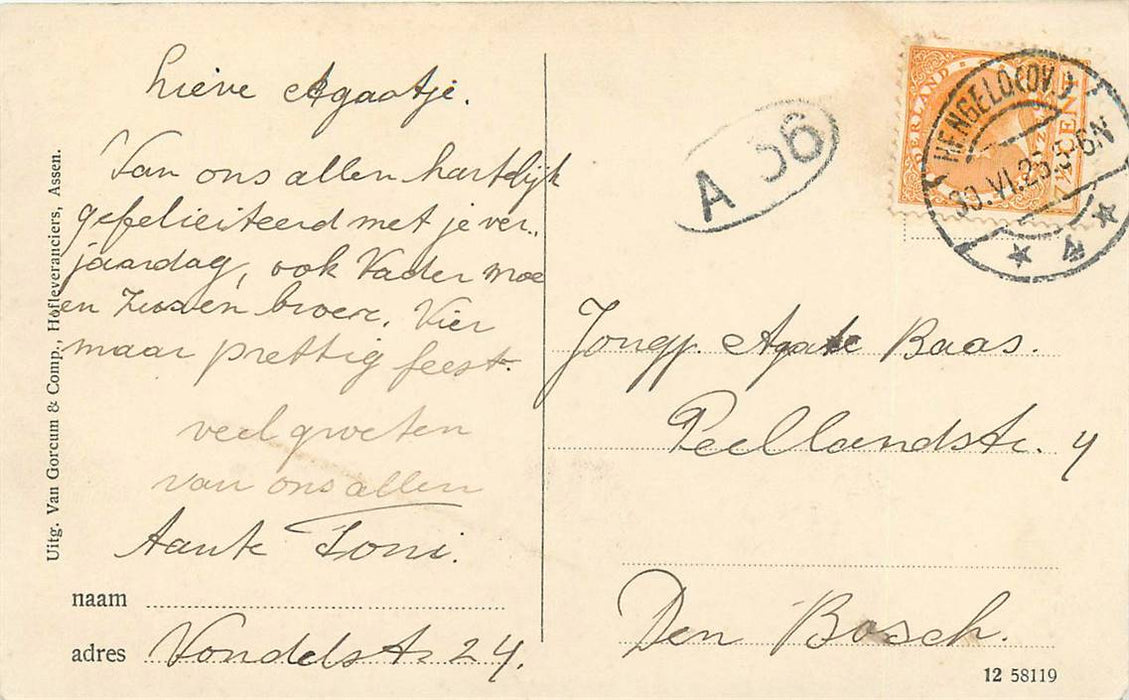 Lieve Agaatje.
Van ons allen hartelijk
gefeliciteerd met je ver-
jaardag, ook Vader moe
en zus en broer. Vier
maar prettig feest.
veel groeten
van ons allen
Tante Toni.
naam
adres Vondelstr. 24.
Uitg. Van Gorcum & Comp., Hofleveranciers, Assen.
A 36
NEDERLAND
7½ CENT
HENGELO (OV.)
30.VI.25 5-6N
Jongj. Agate Baas.
Peellandstr. 4
Den Bosch.
12 58119